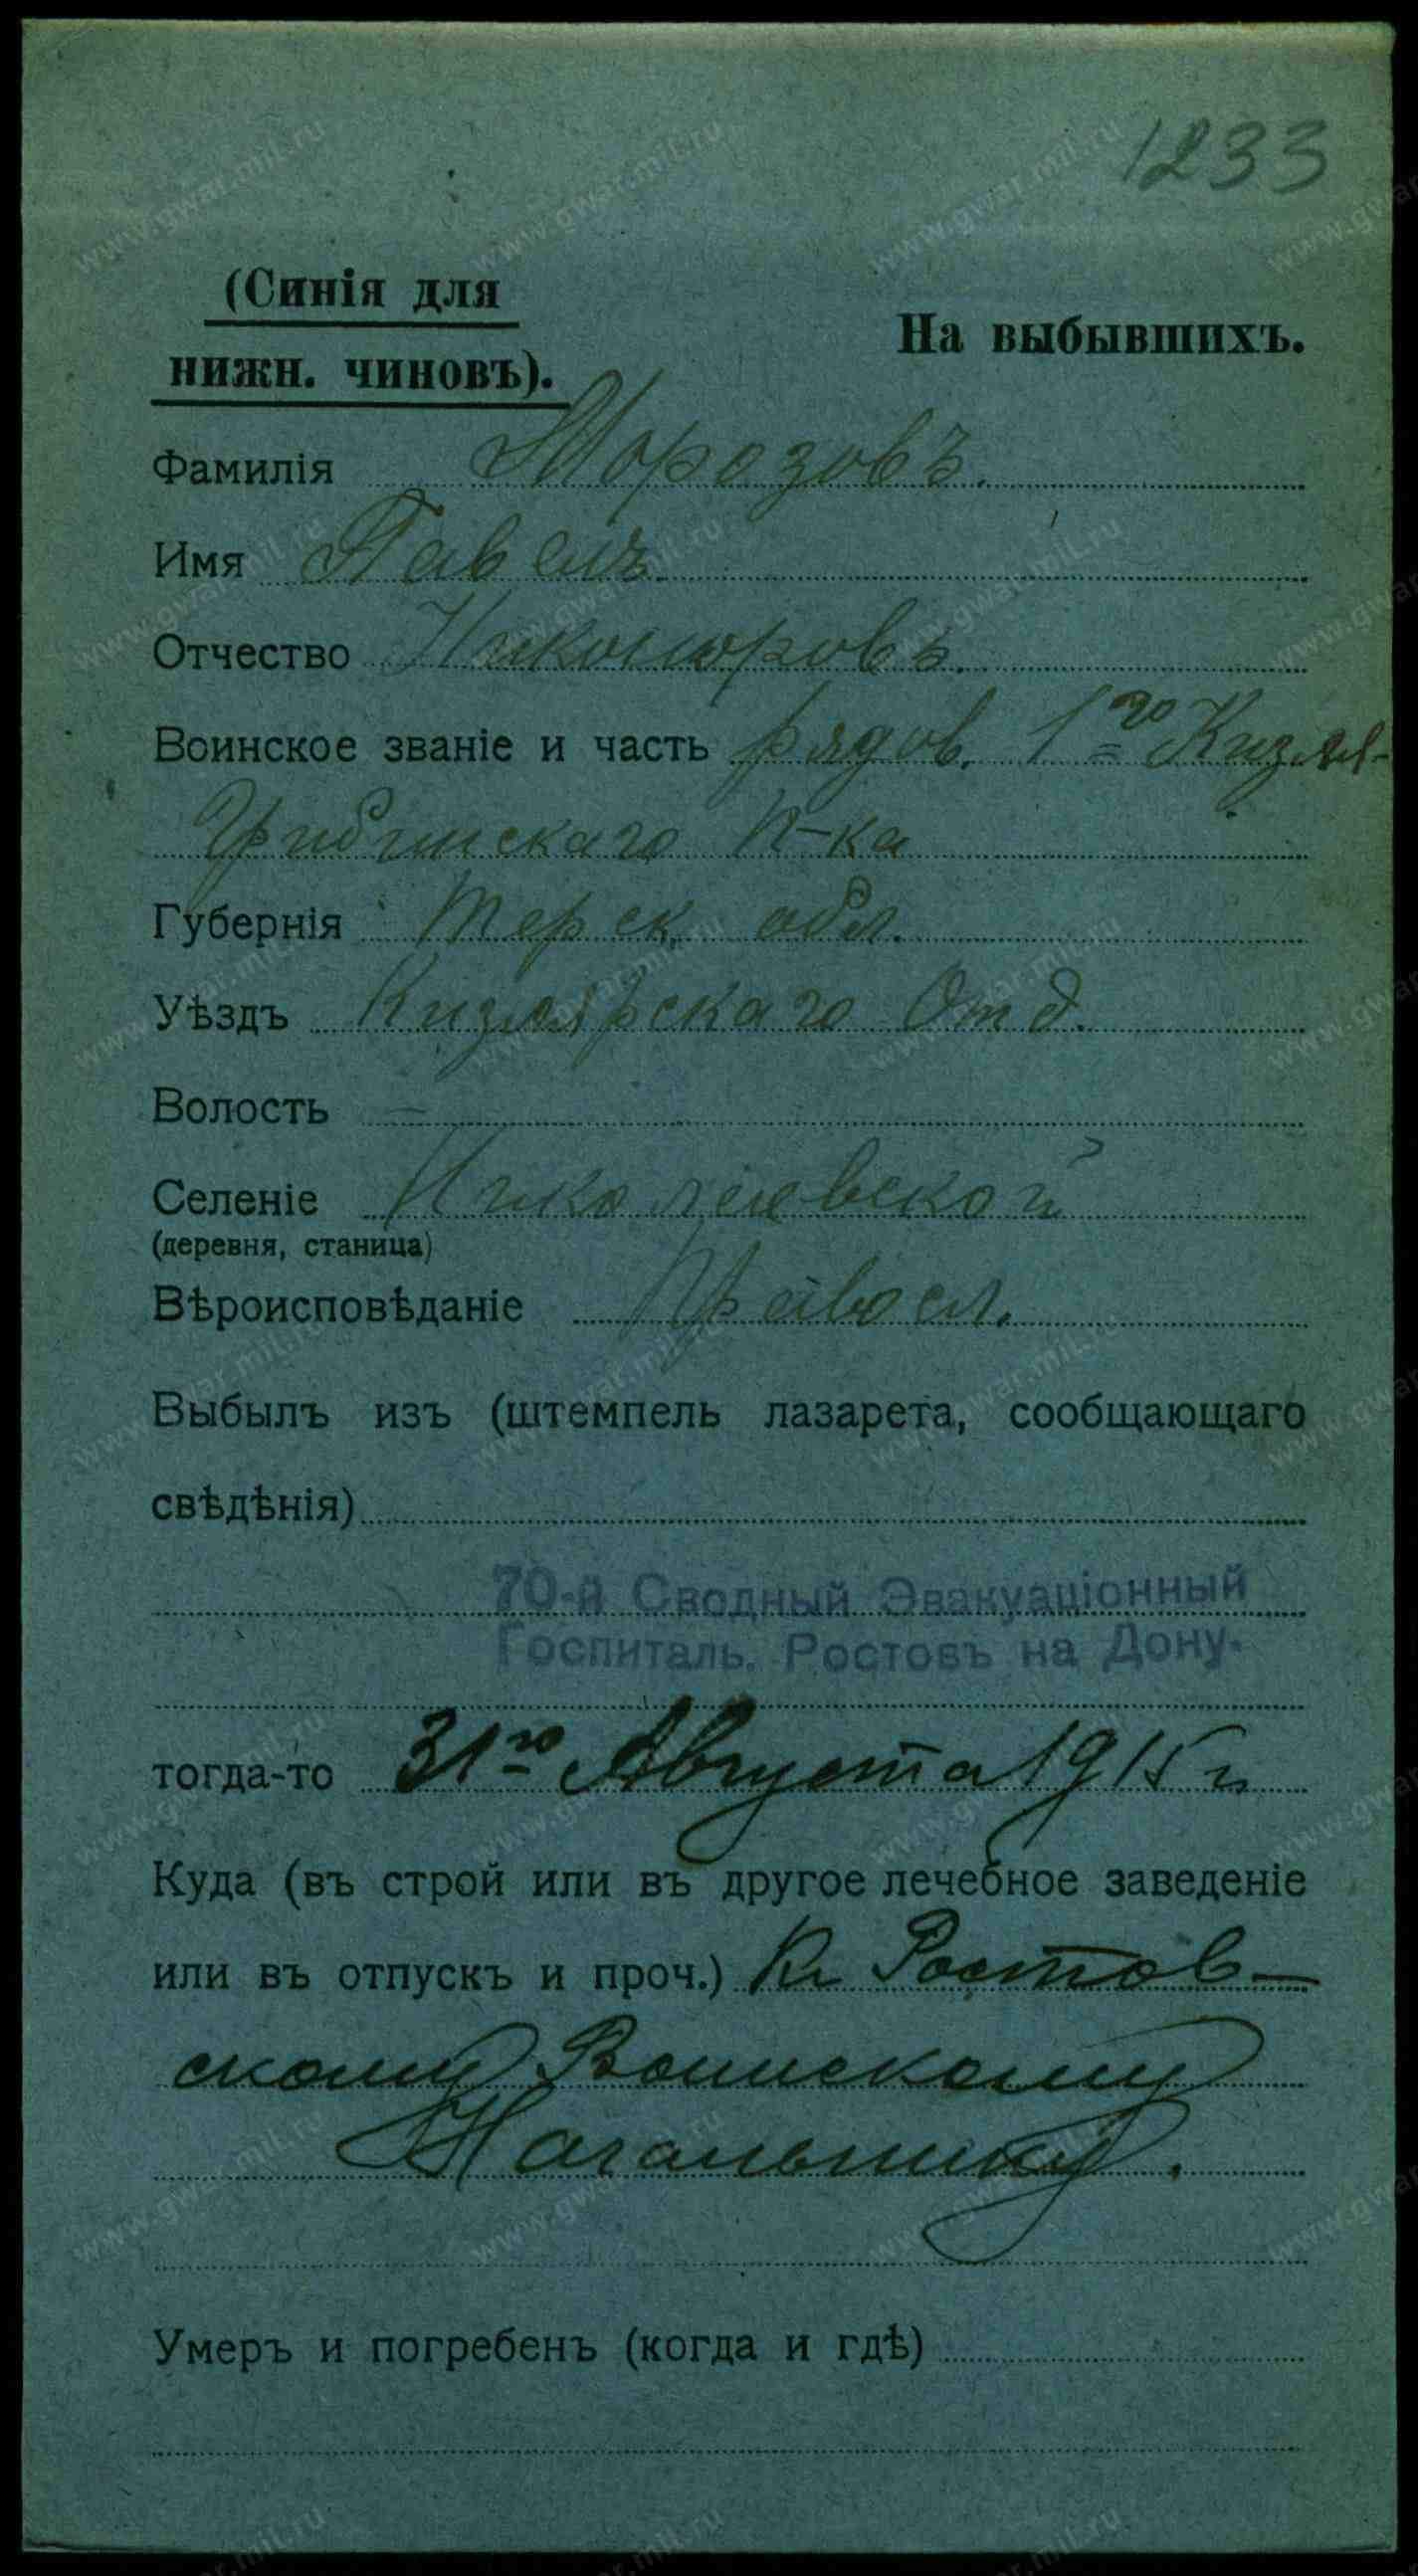 1233
(Синія для
нижн. чиновъ).
На выбывшихъ.
Фамилія Морозовъ.
Имя Павелъ
Отчество Никоноровъ.
Воинское званіе и часть рядов. 1го Кизля-
Гребенскаго п-ка
Губернія Терск. обл.
Уѣздъ Кизлярскаго Отд.
Волость —
Селеніе Николаевской
(деревня, станица)
Вѣроисповѣданіе Правосл.
Выбылъ изъ (штемпель лазарета, сообщающаго
свѣдѣнія)
70-й Сводный Эвакуаціонный
Госпиталь. Ростовъ на Дону.
тогда-то 31го Августа 1915 г.
Куда (въ строй или въ другое лечебное заведеніе
или въ отпускъ и проч.) Къ Ростов-
скому Воинскому
Начальнику.
Умеръ и погребенъ (когда и гдѣ)
www.gwar.mil.ru